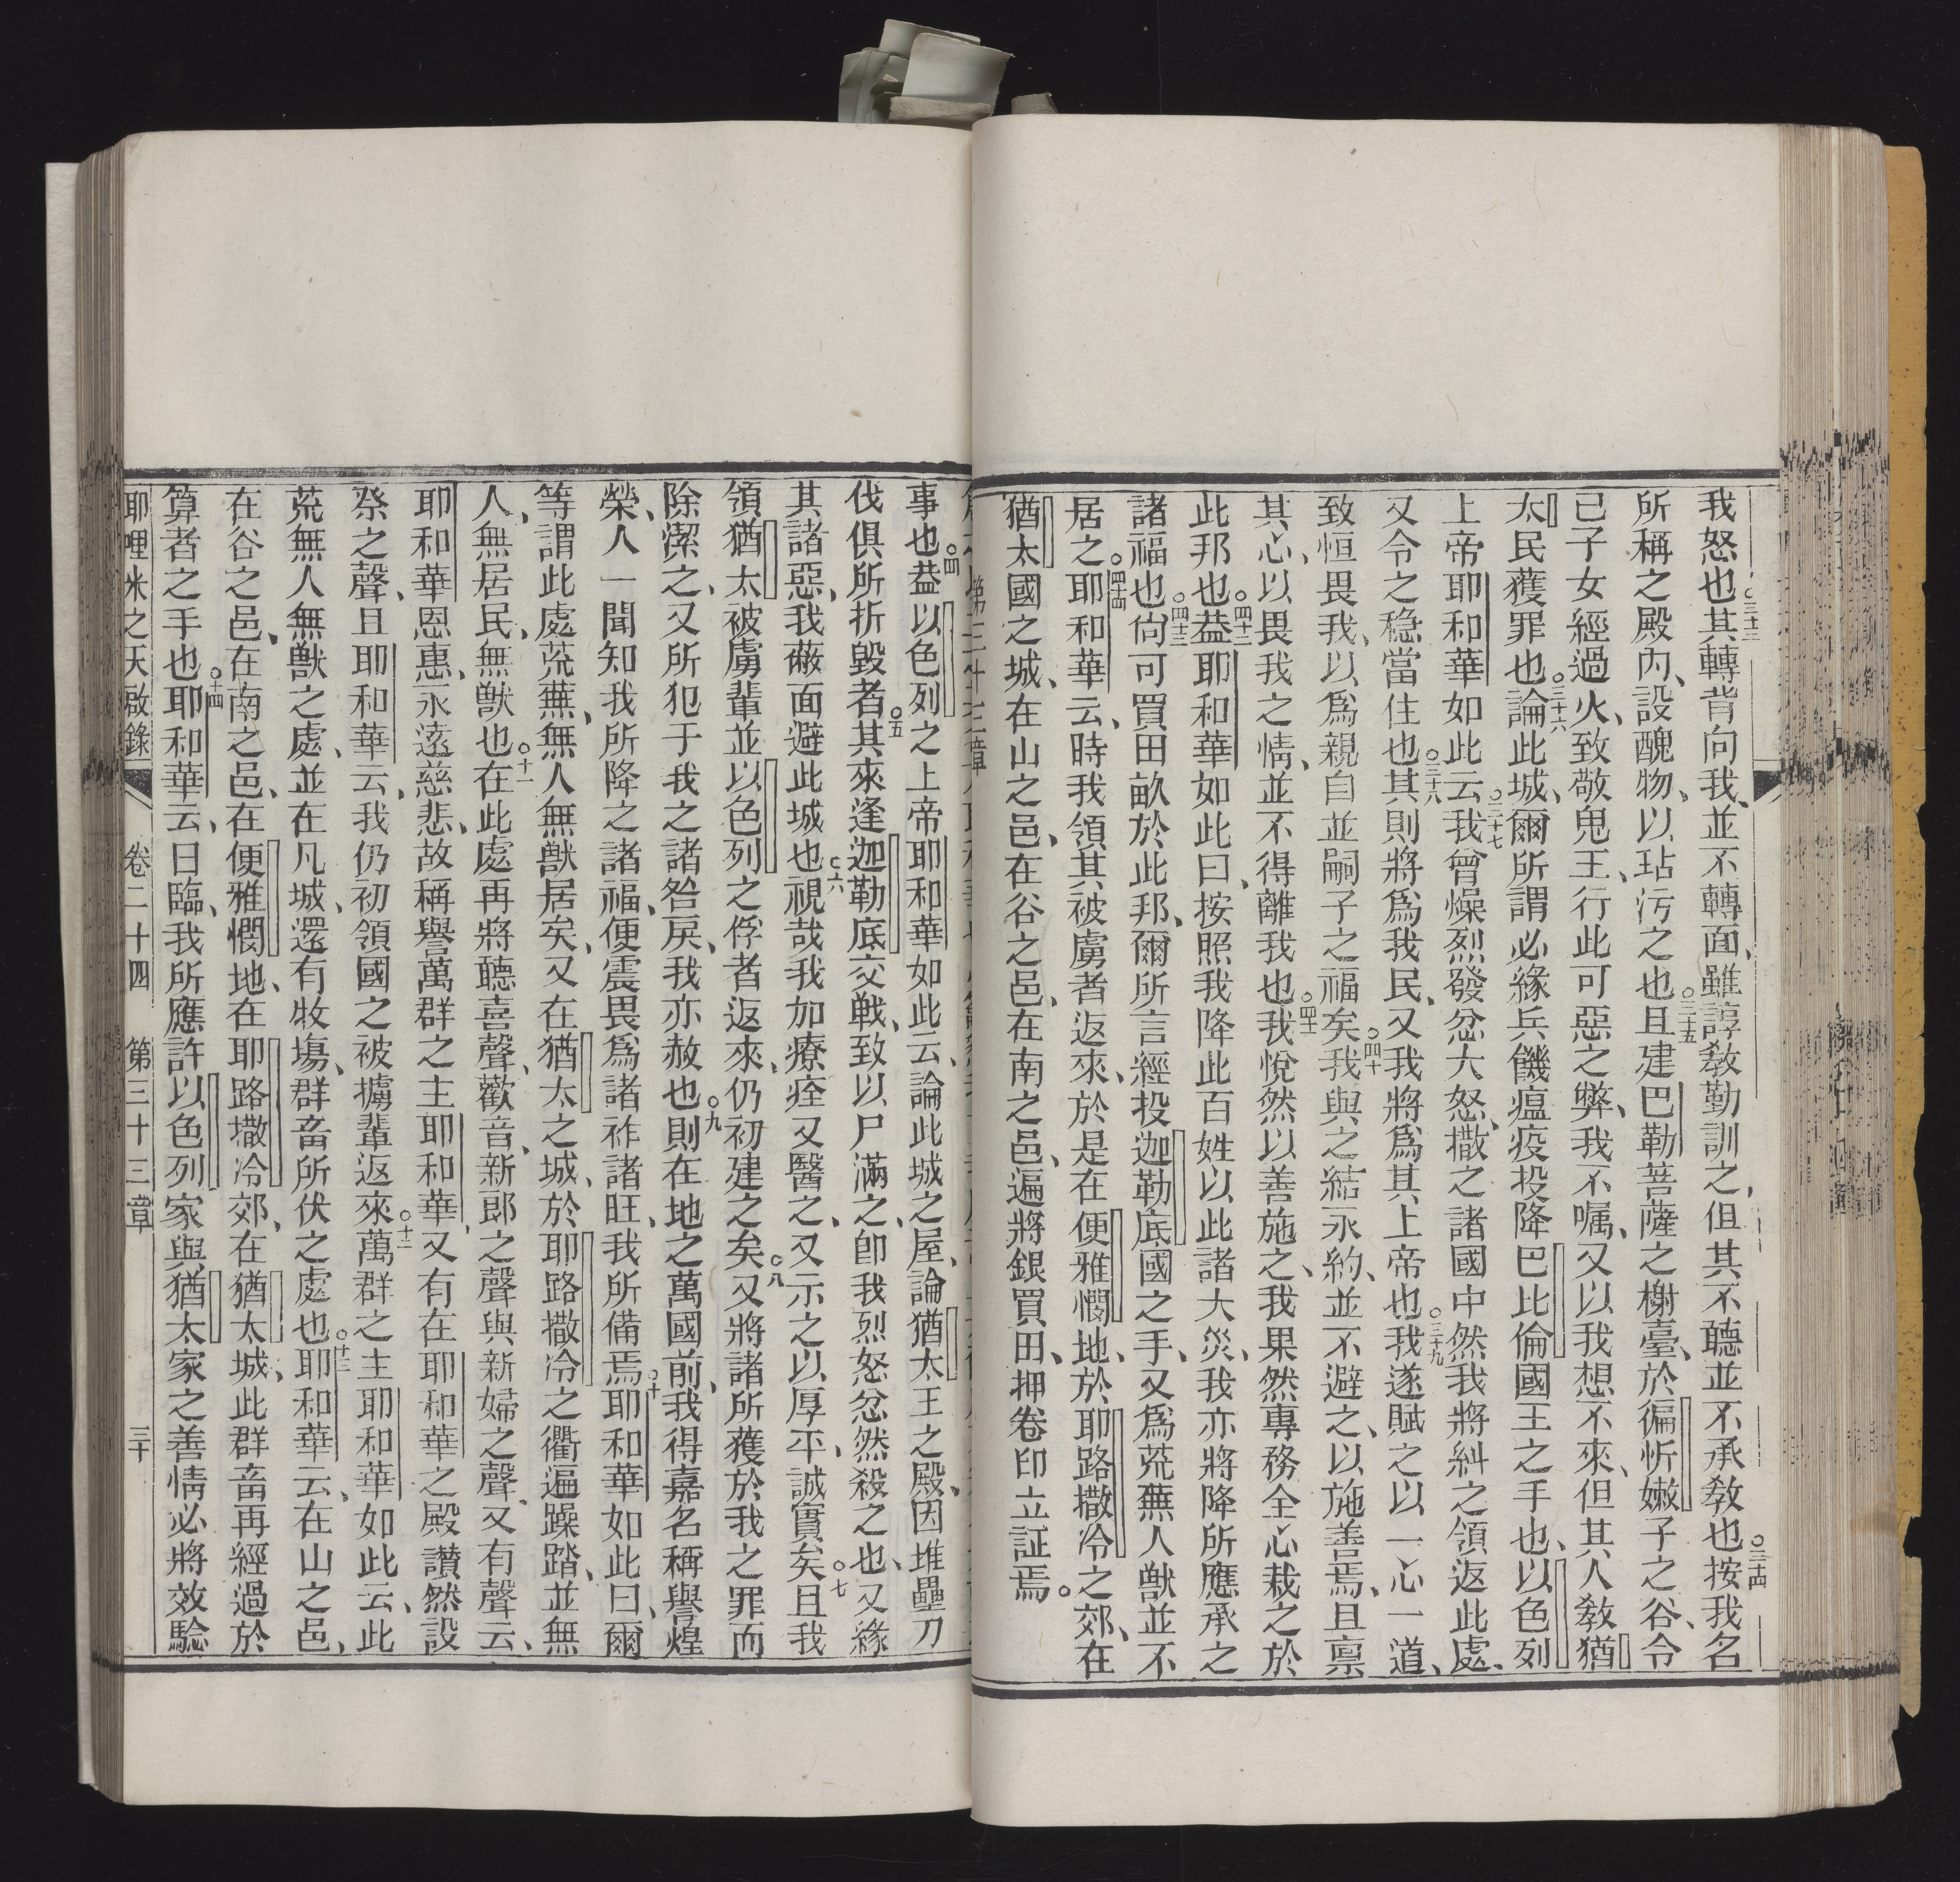 我怒也。三十三其轉背向我、並不轉面、雖諄教勤訓之、但其不聽並不承教也。三十四按我名
所稱之殿內、設醜物、以玷污之也。三十五且建巴勒菩薩之榭臺、於徧忻嫩子之谷、令
已子女經過火、致敬鬼王、行此可惡之弊、我不嘱、又以我想不來、但其人教猶
太民獲罪也。三十六論此城、爾所謂必緣兵饑瘟疫投降巴比倫國王之手也、以色列
上帝耶和華如此云。三十七我曾燥烈發忿大怒、撒之諸國中然我將糾之領返此處、
又令之稳當住也。三十八其則將爲我民、又我將爲其上帝也。三十九我遂賦之以一心一道、
致恒畏我、以爲親自並嗣子之福矣。四十我與之結永約、並不避之、以施善焉、且禀
其心、以畏我之情、並不得離我也。四十一我悅然以善施之、我果然專務全心栽之於
此邦也。四十二葢耶和華如此曰、按照我降此百姓以此諸大災、我亦將降所應承之
諸福也。四十三尙可買田畝於此邦、爾所言經投迦勒底國之手、又爲荒蕪人獸並不
居之。四十四耶和華云、時我領其被虜者返來、於是在便雅憫地、於耶路撒冷之郊、在
猶太國之城、在山之邑、在谷之邑、在南之邑、遍將銀買田、押卷印立証焉。
第三十三章
事也。四葢以色列之上帝耶和華如此云、論此城之屋、論猶太王之殿、因堆壘刀
伐俱所折毀者。五其來逢迦勒底交戰、致以尸滿之、卽我烈怒忿然殺之也、又緣
其諸惡、我蔽面避此城也。六視哉我加療痊又醫之、又示之以厚平、誠實矣。七且我
領猶太被虜輩並以色列之俘者返來、仍初建之矣。八又將諸所獲於我之罪而
除潔之、又所犯于我之諸咎戾、我亦赦也。九則在地之萬國前、我得嘉名稱譽煌
榮、人一聞知我所降之諸福、便震畏爲諸祚諸旺、我所備焉。十耶和華如此曰、爾
等謂此處荒蕪、無人無獸居矣、又在猶太之城、於耶路撒冷之衢遍躁踏、並無
人、無居民、無獸也。十一在此處再將聽喜聲、歡音、新郎之聲與新婦之聲、又有聲云、
耶和華恩惠、永遠慈悲、故稱譽萬群之主耶和華、又有在耶和華之殿讚然設
祭之聲、且耶和華云、我仍初領國之被擄輩返來。十二萬群之主耶和華如此云、此
荒無人無獸之處、並在凡城、還有牧塲、群畜所伏之處也。十三耶和華云、在山之邑、
在谷之邑、在南之邑、在便雅憫地、在耶路撒冷郊、在猶太城、此群畜再經過於
算者之手也。十四耶和華云、日臨、我所應許以色列家與猶太家之善情必將效騐
耶哩米之天啟錄 卷二十四 第三十三章 三十